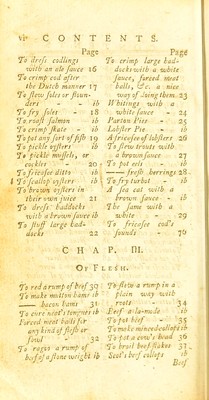 vi CONTENTS.
Page
To dress codlings
with an ale sauce 16
To crimp cod after
the Dutch manner 17
To stew soles or floun-
ders - - ib
To fry soles - 18
To roast salmon ib
To crimp skate - ib
To pot any sort of fish 19
To pickle oysters ib
To pickle mussels, or
cockles - 20
To fricasee ditto - ib
To scallop oysters ib
To brown oysters in
their own juice 21
To dress haddocks
with a brown sauce ib
To stuff large had-
docks 22
Page
To crimp large had-
docks with a white
sauce, forced meat
balls, &c. a nice
way of doing them. 23
Whitings with a
white sauce - 24
Partan Pies - 25
Lobster Pie - ib
A fricasee of lobsters 26
To stew trouts with
a brown sauce - 27
To pot eels - ib
—— fresh herrings 28
To fry turbot - ib
A sea cat with a
brown sauce - ib
The same with a
white - 29
To fricasee cod's
sounds - 70
CHAP. III.
Of FLESH.
To red a rump of beef 30
To make mutton hams ib
—— bacon hams 31
To cure neat's tongues ib
Forced meat balls for
any kind of flesh or
fowl - 32
To ragoo a rump of
beef of a stone weight ib
To stew a rump in a
plain way with
roots - 34
Beef-a-la-mode ib
To pot beef - 35
To make minced collops ib
To pot a cow's head 36
To broyl beef stakes 37
Scot's beef collops ib
Beef